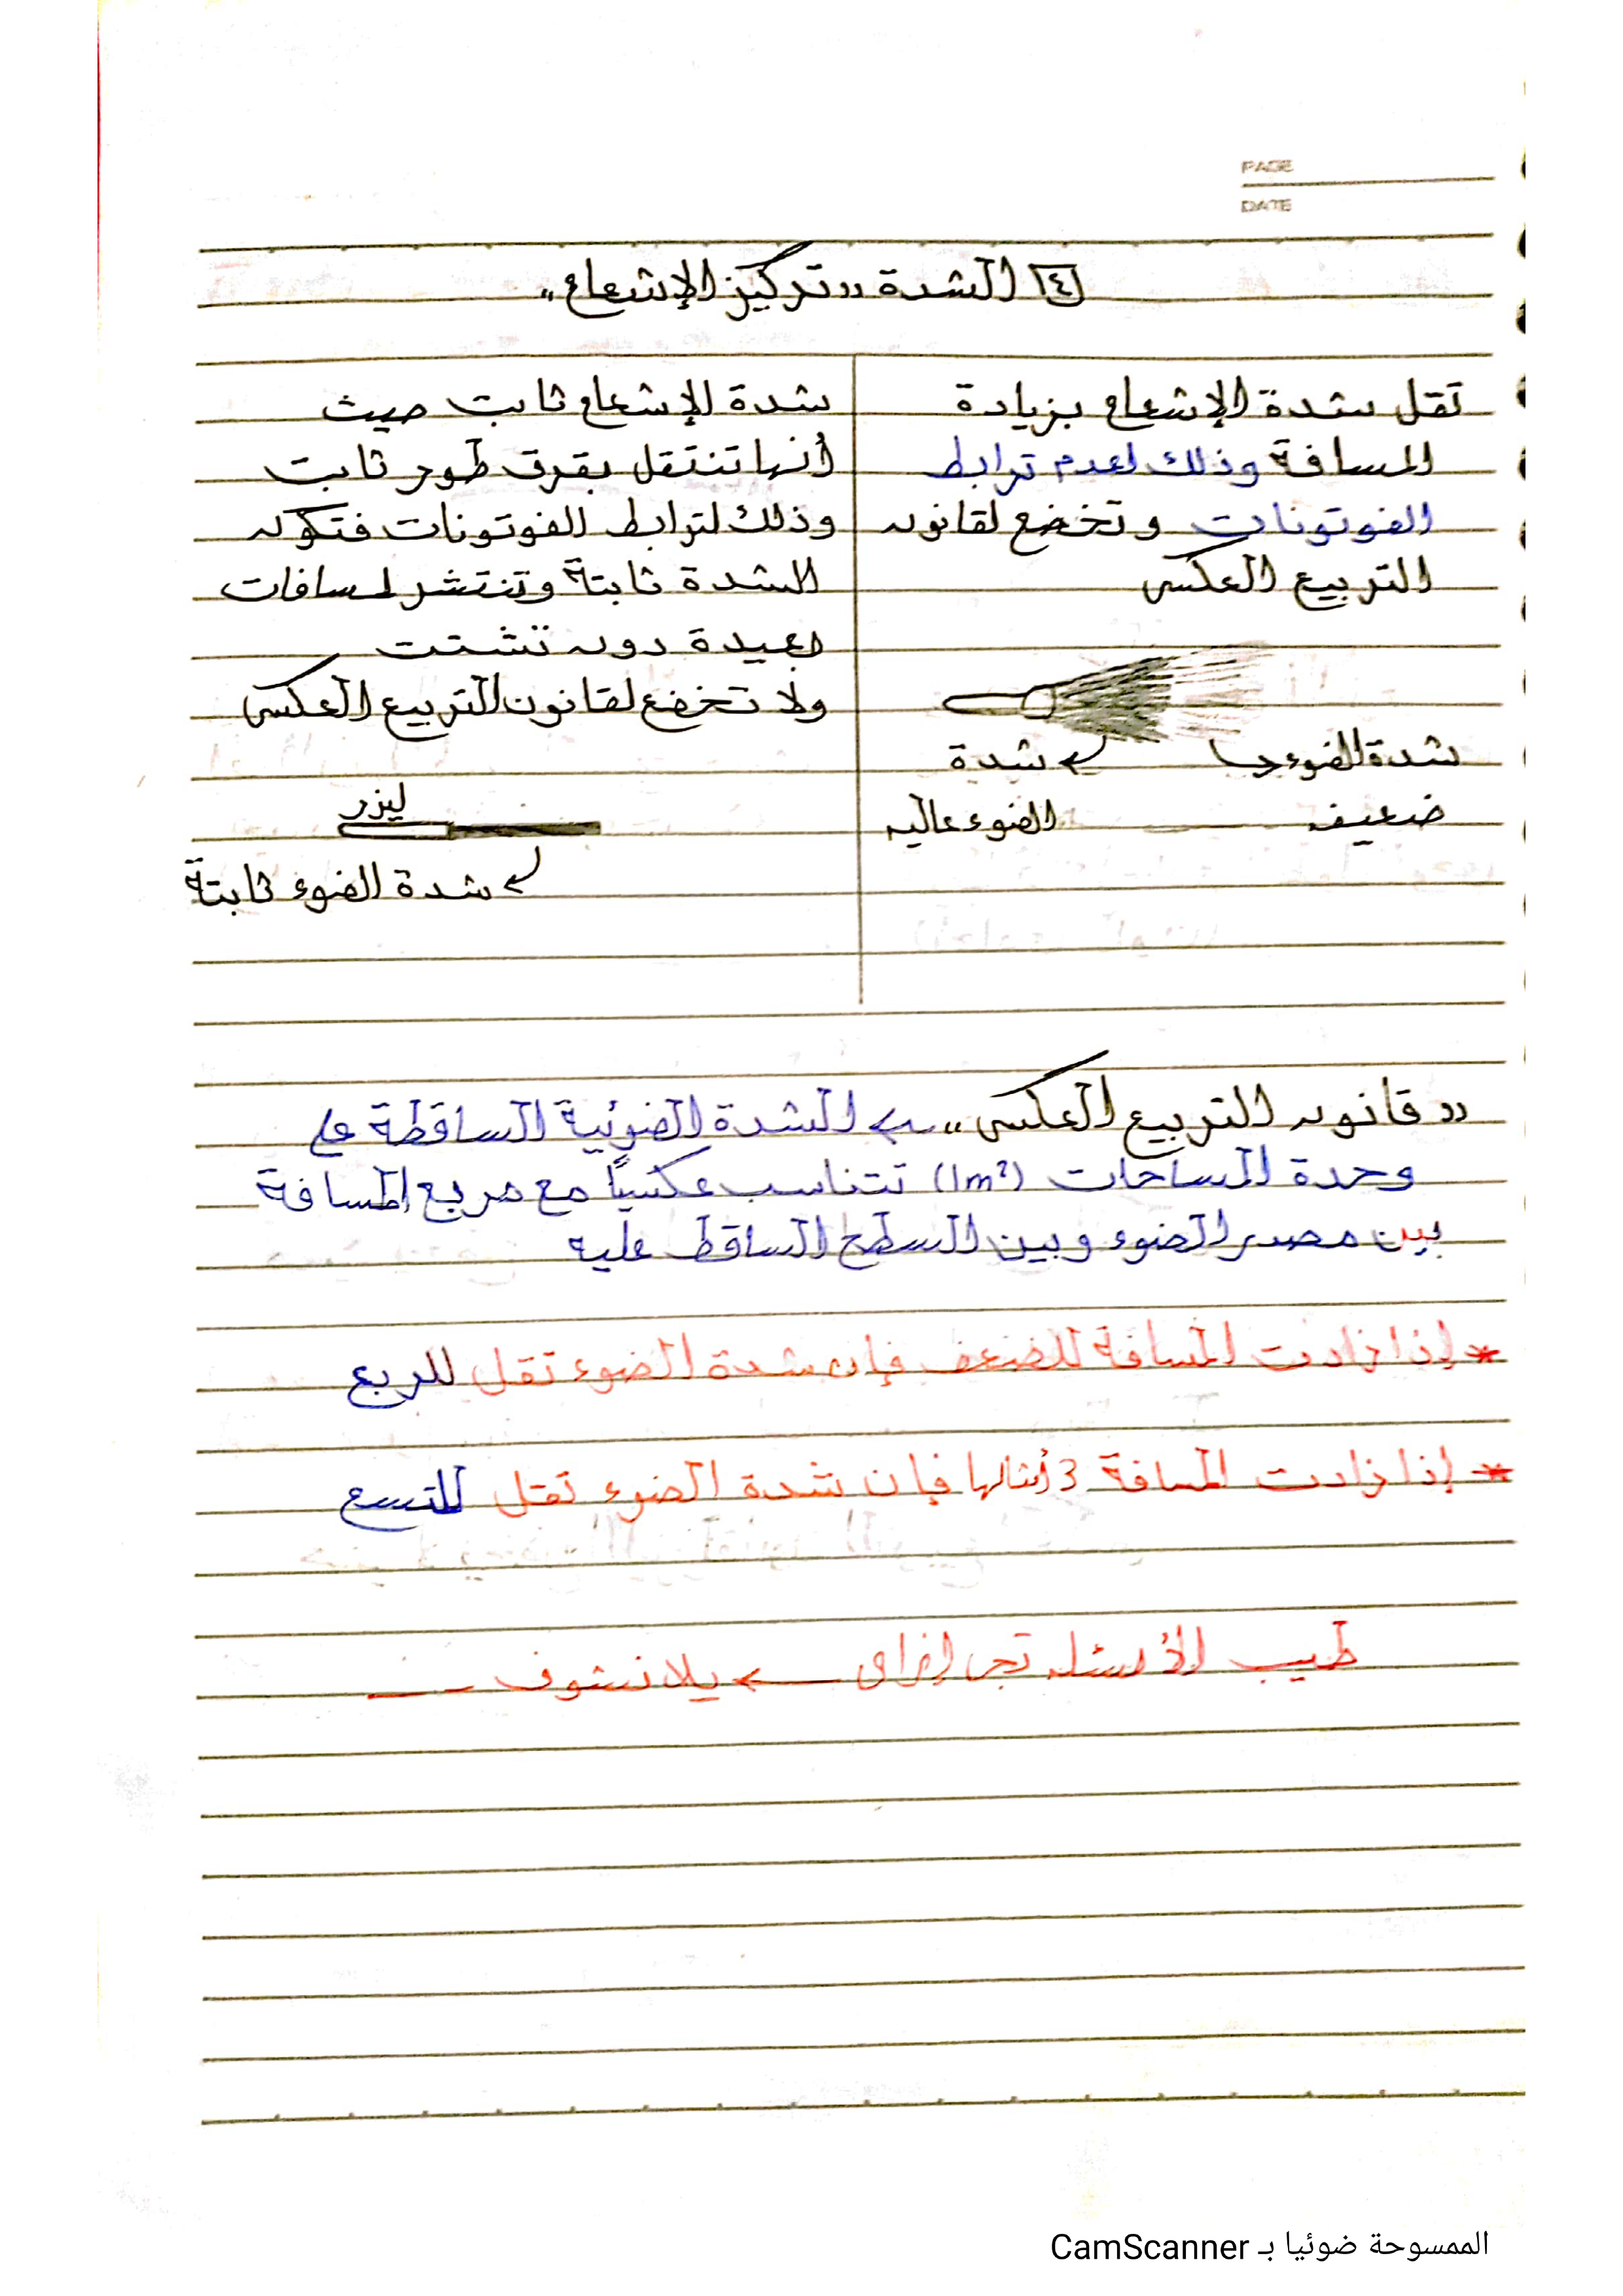 PAGE
DATE
٤ الشدة ,, تركيز الإشعاع ,,
تقل شدة الإشعاع بزيادة
المسافة وذلك لعدم ترابط
الفوتونات وتخضع لقانون
التربيع العكسى
شدة الضوء
شدة
ضعيف
الضوء عاليه
شدة الإشعاع ثابت حيث
أنها تنتقل بفرق طور ثابت
وذلك لترابط الفوتونات فتكون
الشدة ثابتة وتنتشر لمسافات
بعيدة دون تشتت
ولا تخضع لقانون التربيع العكسى
ليزر
شدة الضوء ثابتة
,, قانون التربيع العكسى ,, ← الشدة الضوئية الساقطة على
وحدة المساحات (1m²) تتناسب عكسياً مع مربع المسافة
بين مصدر الضوء وبين السطح الساقط عليه
* إذا زادت المسافة للضعف فإن شدة الضوء تقل للربع
* إذا زادت المسافة 3 أمثالها فإن شدة الضوء تقل للتسع
طيب الأسئلة تجى إزاى ← يلا نشوف
الممسوحة ضوئيا بـ CamScanner